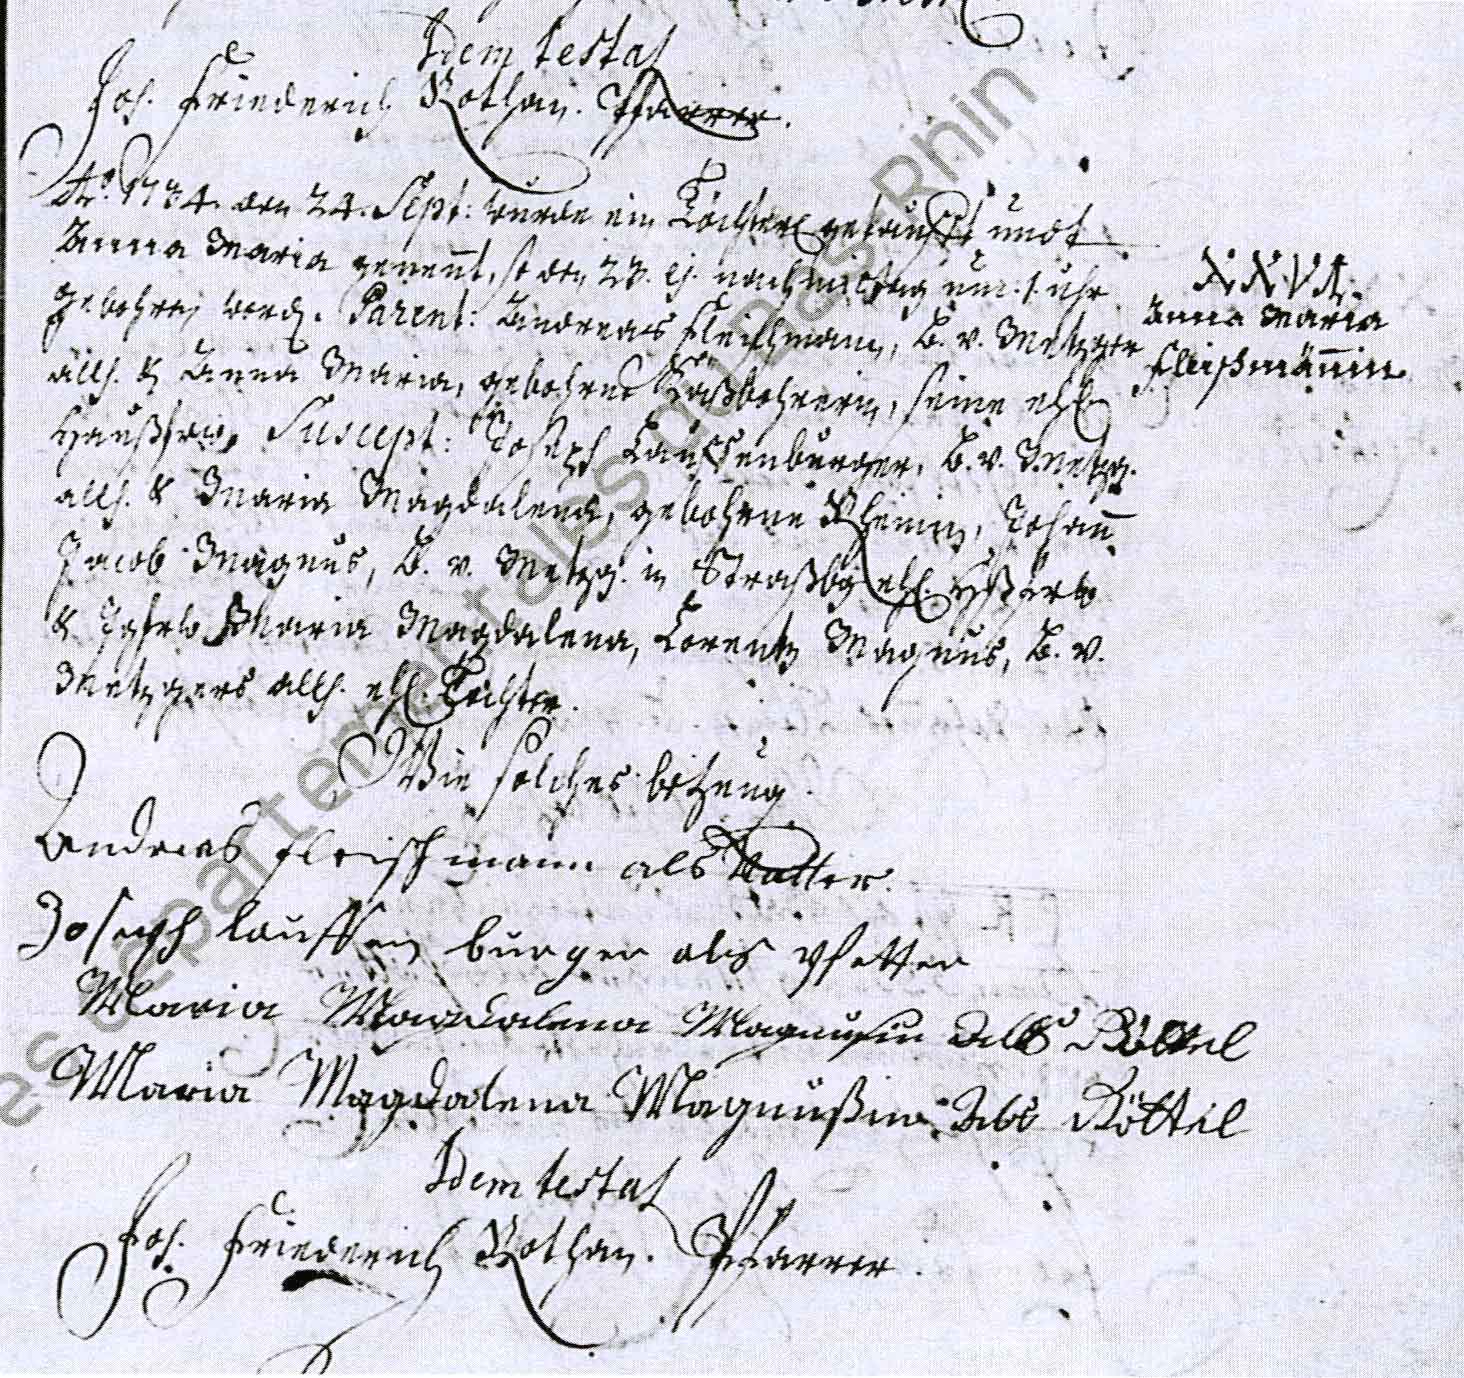 Idem testat
Joh. Friederich Rothan. Pfarrer.
Aō. 1734. den 24. Sept: wurde ein Töchterl. getaufft undt
Anna Maria genent, so den 23. ej. nachmittag um. 1. uhr
gebohren word. Parent: Andreas Fleischmann, B. v. Metzger
allh. & Anna Maria, gebohrne Haßbohrerin, seine ehl.
Haußfrau. Suscept: Joseph Lauffenburger, B. v. Metzg.
allh. & Maria Magdalena, gebohrne Rheinin, Johann
Jacob Magnus, B. v. Metzg. in Straßbg ehl. Hßfrau
& Jgfrau Maria Magdalena, Lorentz Magnus, B. v.
Metzgers allh. ehl. Tochter.
XXVI.
Anna Maria
Fleischmännin
Wie solches bezeug.
Andreas fleischmann als Vatter.
Joseph lauffen burger als pfetter
Maria Magdalena Magnusin als Göttel
Maria Magdalena Magnußin als Göttel
Idem testat
Joh. Friederich Rothan. Pfarrer.
Bas Rhin